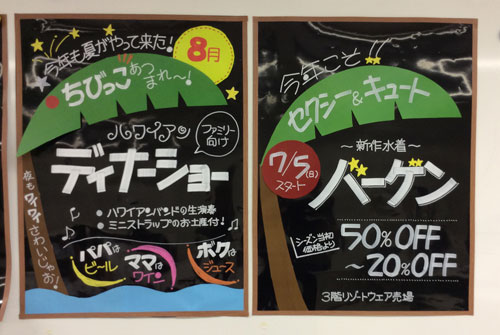 今年も夏がやって来た!
8月
ちびっこあつまれ~!
ハワイアン
ファミリー
向け
ディナーショー
・ハワイアンバンドの生演奏
・ミニストラップのお土産付!
夜もワイワイさわいじゃお!
パパは
ビール
ママは
ワイン
ボクは
ジュース
今年こそ!!
セクシー&キュート
~新作水着~
7/5(日)
スタート
バーゲン
シーズン当初
価格より
50%OFF
~20%OFF
3階リゾートウェア売場